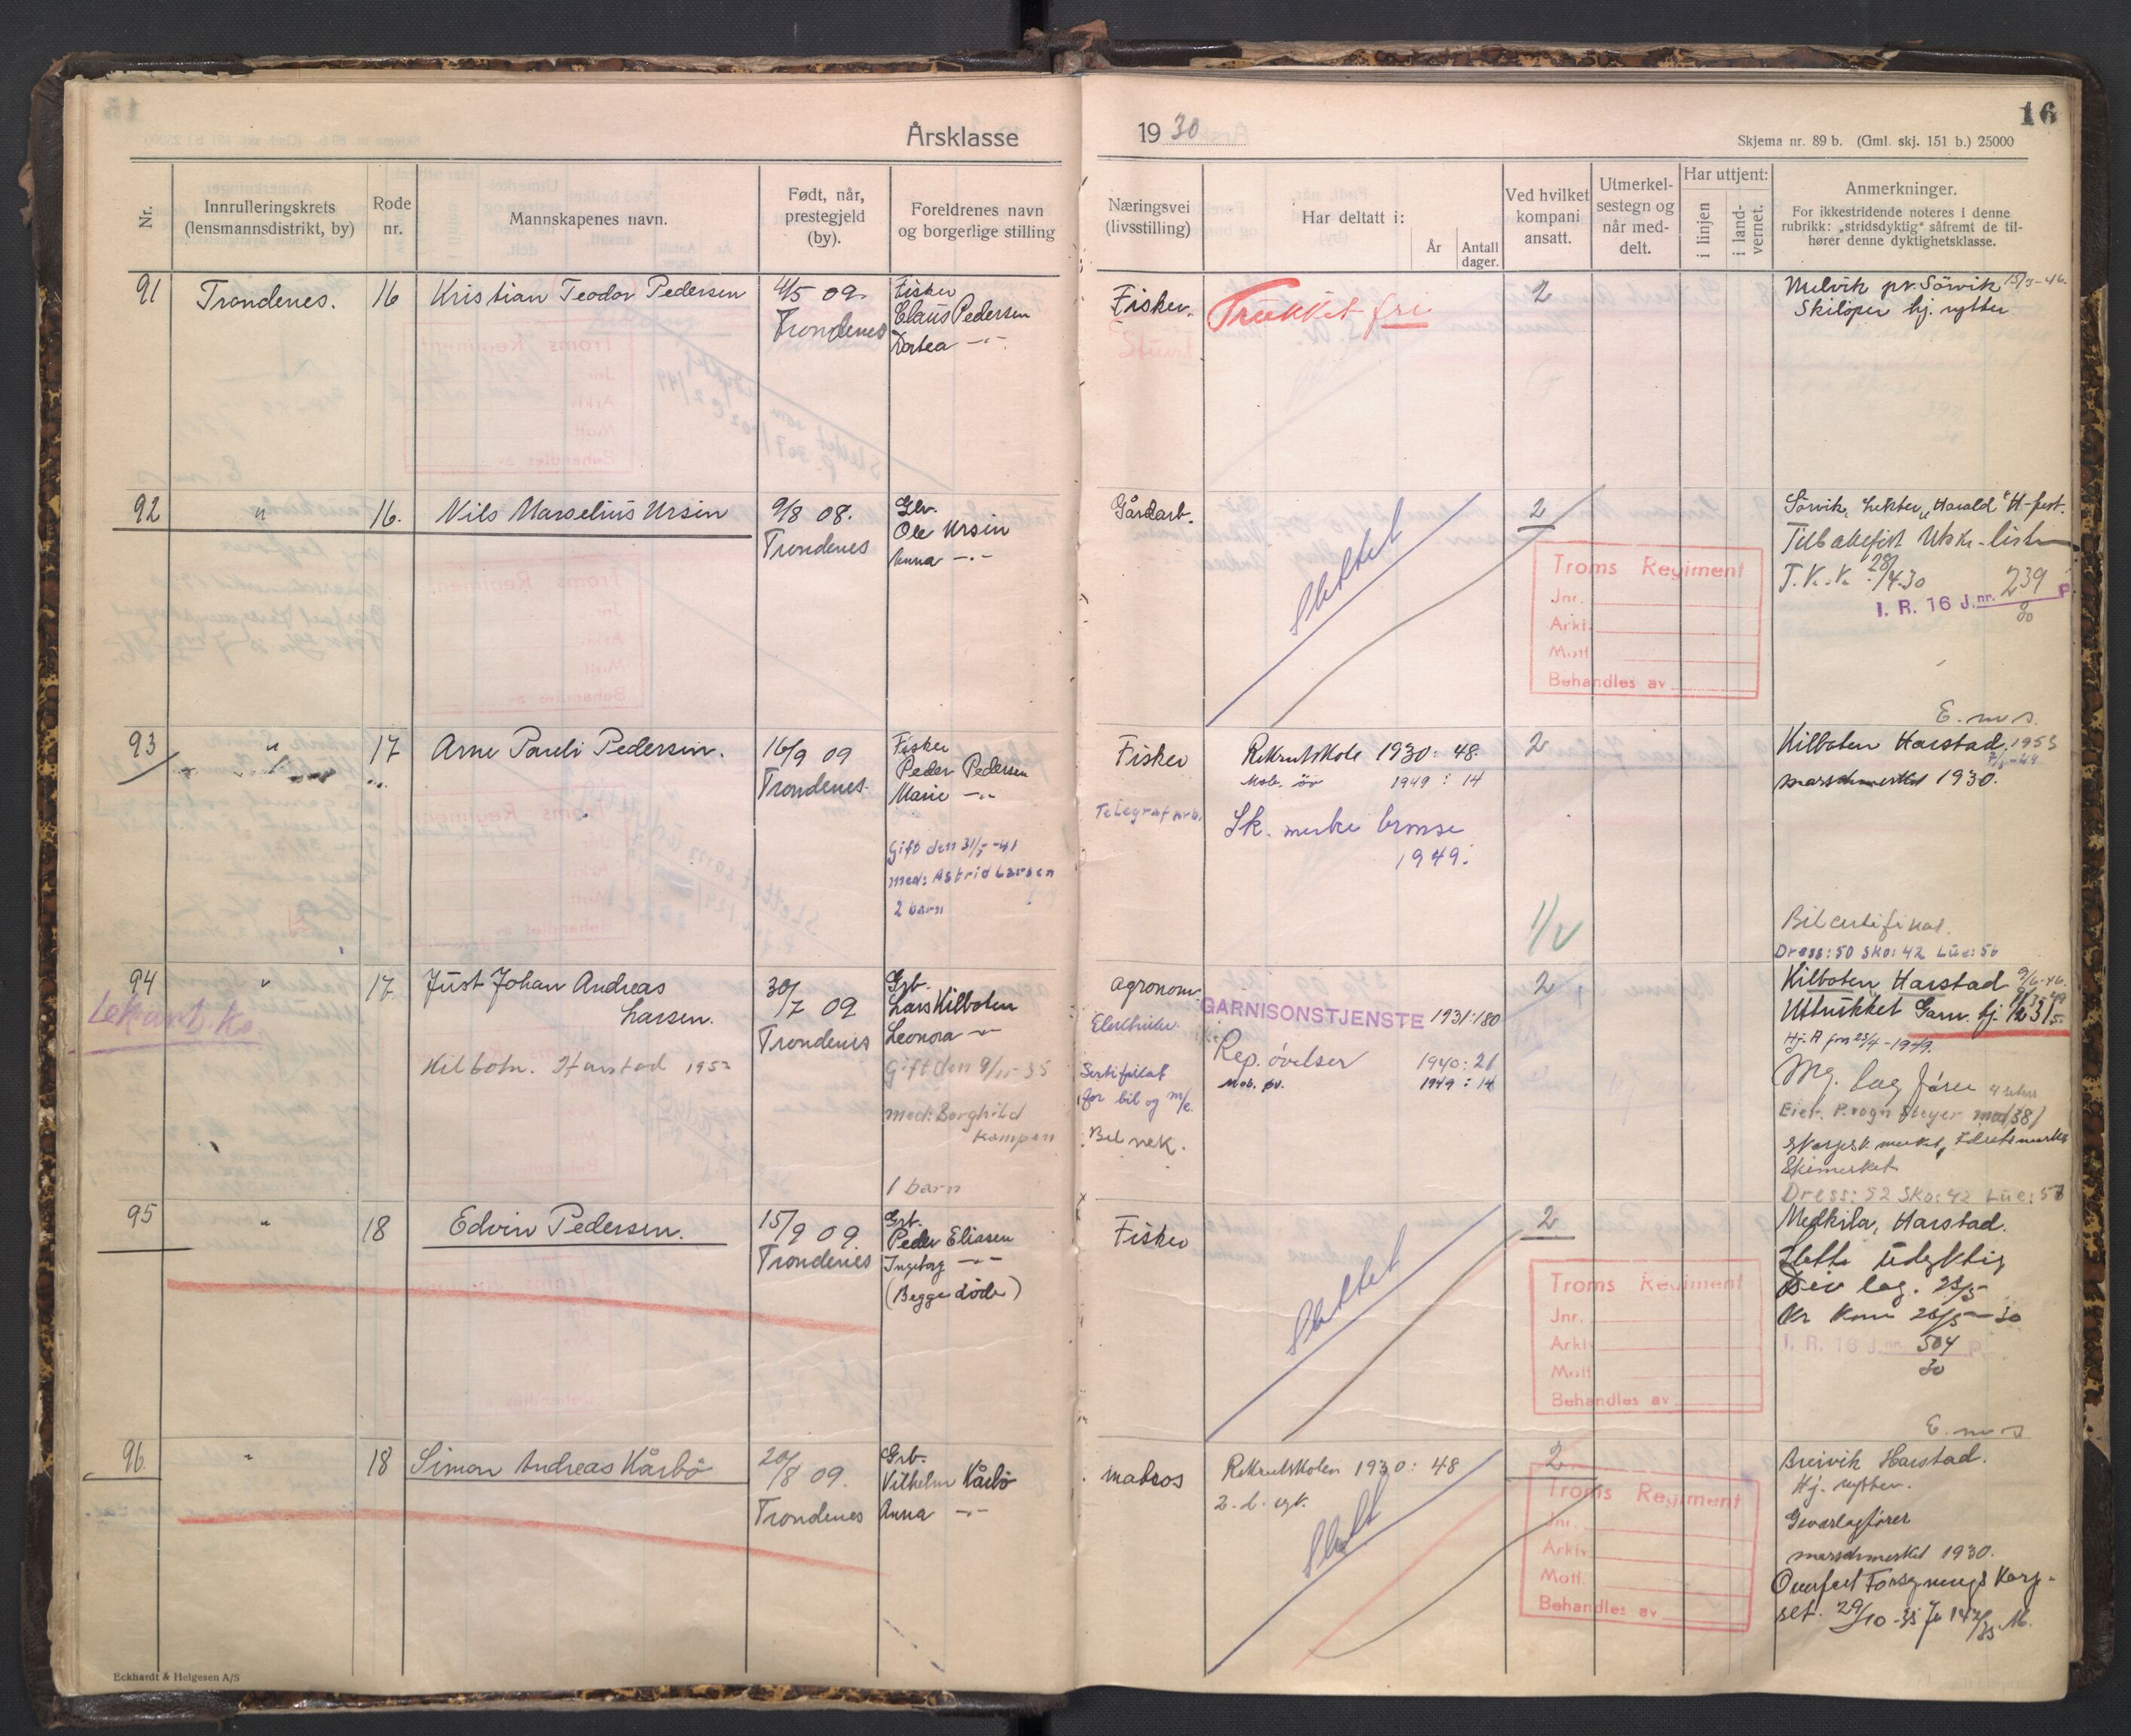 16
Årsklasse 1930
Skjema nr. 89 b. (Gml. skj. 151 b.) 25000
Nr.
Innrulleringskrets (lensmannsdistrikt, by)
Rode nr.
Mannskapenes navn.
Født, når, prestegjeld (by).
Foreldrenes navn og borgerlige stilling
Næringsvei (livsstilling)
Har deltatt i:
År
Antall dager.
Ved hvilket kompani ansatt.
Utmerkelsestegn og når meddelt.
Har uttjent:
i linjen
i landvernet.
Anmerkninger.
For ikkestridende noteres i denne rubrikk: „stridsdyktig" såfremt de tilhører denne dyktighetsklasse.
91
Trondenes.
16
Kristian Teodor Pedersen
4/5 09.
Trondenes
Fisker
Claus Pedersen
Dortea -"-
Fisker.
Trukket fri
2
Melvik pr. Sörvik 15/3-46.
Skilöper hj. rytter
92
"
16.
Nils Marselius Ursin
9/8 08.
Trondenes
Ole Ursin
Anna -"-
Gårdarb.
Slettet
2
Troms Regiment
Jnr.
Arkiv
Mott
Behandles av
Sörvik, Lekter „Harald" H-fest.
T.K.K. 28/4-30
I. R. 16 J.nr. 239 P.
30
93
"
17
Arne Pauli Pedersen.
16/9 09
Trondenes.
Fisker
Peder Pedersen
Marie -"-
Gift den 31/5-41
med: Astrid Larsen
2 barn
Fisker
Telegrafarb.
Rekrutskole 1930: 48
Mob. öv 1949: 14
Sk. merke bronse
1949.
2
E. m s.
Kilboten Harstad. 1953
marschmerket 1930.
Bilcertifikat.
Dress: 50 Sko: 42 Lue: 56
94
"
17
Just Johan Andreas
Larsen.
Kilbotn. Harstad 1953
30/7 09
Trondenes
Grb.
Lars Kilboten
Leonora -"-
Gift den 9/11-35
med: Borghild
Kampen
1 barn
agronom
Sertifikat
for bil og m/c.
Bil mek.
GARNISONSTJENSTE 1931: 180
Rep. övelser 1940: 21
Mob. öv. 1949: 14
2
Kilboten, Harstad 9/6-46.
Utrukket Garn. tj.
Hj. A fra 25/4-1949.
Mg. lag förer
Eier. P.vogn Steyer mod/38/
Skimerket
Dress: 52 Sko: 42 Lue: 58
95
"
18
Edvin Pedersen.
15/9 09
Trondenes
Grb.
Peder Eliasen
Ingeborg -"-
(Begge döde)
Fisker
Slettet
2
Troms Regiment
Jnr.
Arkiv
Mott
Behandles av
Medkila, Harstad.
Slette udyktig
I. R. 16 J.nr. 504 P.
30
96.
"
18
Simon Andreas Kårbö
20/8 09.
Trondenes
Grb.
Vilhelm Kårbö
Anna -"-
matros
Rekrutskolen 1930: 48
Slett
2
Troms Regiment
Jnr.
Arkiv
Mott.
Behandles av
E. m s
Breivik Harstad.
Hj. rytter.
Geværlagförer
marschmerket 1930.
Overfört Forsyningskorp-
set. 29/10-35
Eckhardt & Helgesen A/S